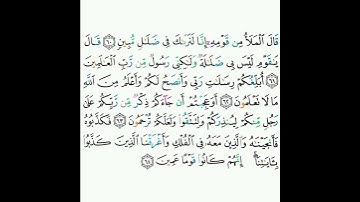 قَالَ ٱلْمَلَأُ مِن قَوْمِهِۦٓ إِنَّا لَنَرَىٰكَ فِى ضَلَـٰلٍ مُّبِينٍ ٦٠ قَالَ
يَـٰقَوْمِ لَيْسَ بِى ضَلَـٰلَةٌ وَلَـٰكِنِّى رَسُولٌ مِّن رَّبِّ ٱلْعَـٰلَمِينَ
٦١ أُبَلِّغُكُمْ رِسَـٰلَـٰتِ رَبِّى وَأَنصَحُ لَكُمْ وَأَعْلَمُ مِنَ ٱللَّهِ
مَا لَا تَعْلَمُونَ ٦٢ أَوَعَجِبْتُمْ أَن جَآءَكُمْ ذِكْرٌ مِّن رَّبِّكُمْ عَلَىٰ
رَجُلٍ مِّنكُمْ لِيُنذِرَكُمْ وَلِتَتَّقُوا۟ وَلَعَلَّكُمْ تُرْحَمُونَ ٦٣ فَكَذَّبُوهُ
فَأَنجَيْنَـٰهُ وَٱلَّذِينَ مَعَهُۥ فِى ٱلْفُلْكِ وَأَغْرَقْنَا ٱلَّذِينَ كَذَّبُوا۟
بِـَٔايَـٰتِنَآ إِنَّهُمْ كَانُوا۟ قَوْمًا عَمِينَ ٦٤